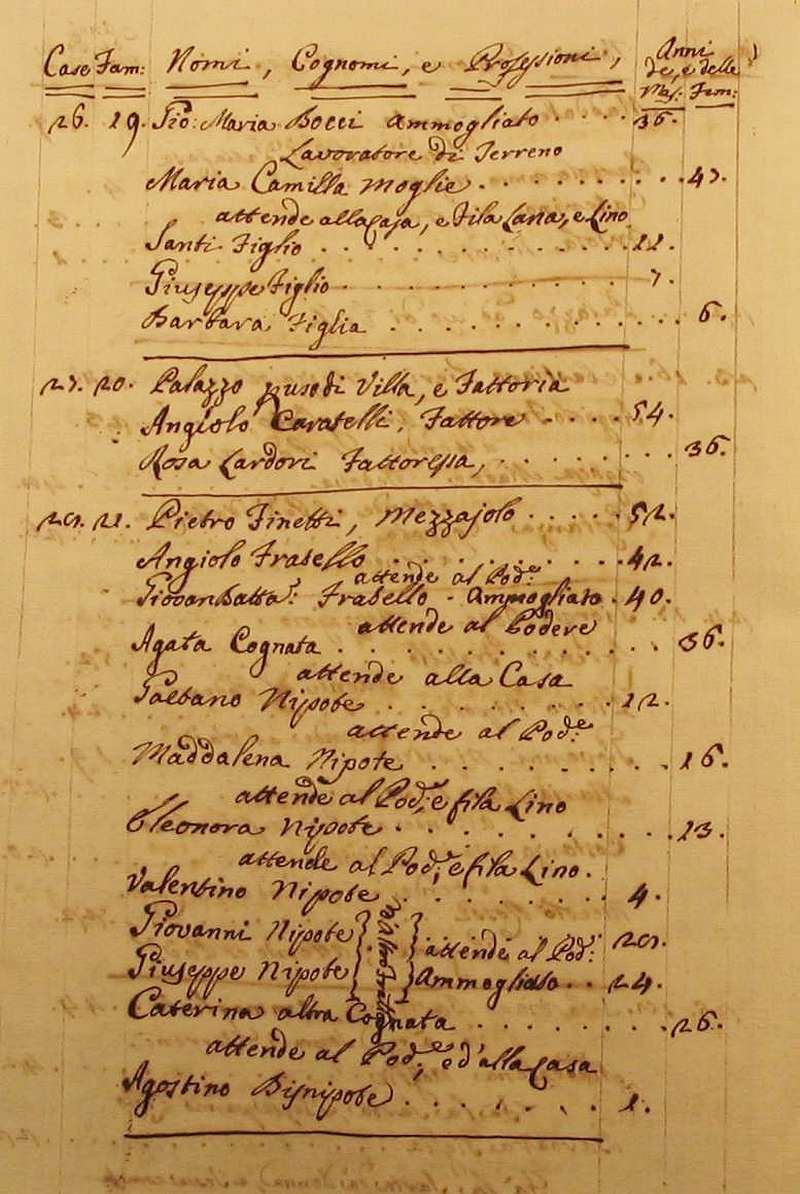 Case Fam: Nomi, Cognomi, e Professioni, Anni
de, e delle
Mas. Fem:
26. 19. Gio: Maria Bocci Ammogliato 36.
Lavoratore di Terreno
Maria Camilla Moglie 43.
attende alla Casa, e Fila Lana, e Lino
Santi Figlio 11.
Giuseppe Figlio 7.
Barbara Figlia 6.
27. 20. Palazzo p uso di Villa, e Fattoria
Angiolo Caratelli, Fattore 54.
Rosa Lardori Fattoressa, 36.
28. 21. Pietro Finetti, Mezzajolo 52.
Angiolo Fratello 42.
attende al Pod.e
Giovanbatta: Fratello - Ammogliato 40.
attende al Podere
Agata Cognata 36.
attende alla Casa
Gaetano Nipote 12.
attende al Pod.e
Maddalena Nipote 16.
attende al Pod.e, e fila Lino
Eleonora Nipote 13.
attende al Pod.e, e fila Lino.
Valentino Nipote 4.
Giovanni Nipote attende al Pod: 28.
Giuseppe Nipote Ammogliato 24.
Caterina altra Cognata 26.
attende al Pod.e, e d'alla Casa
Agostino Bisnipote 1.